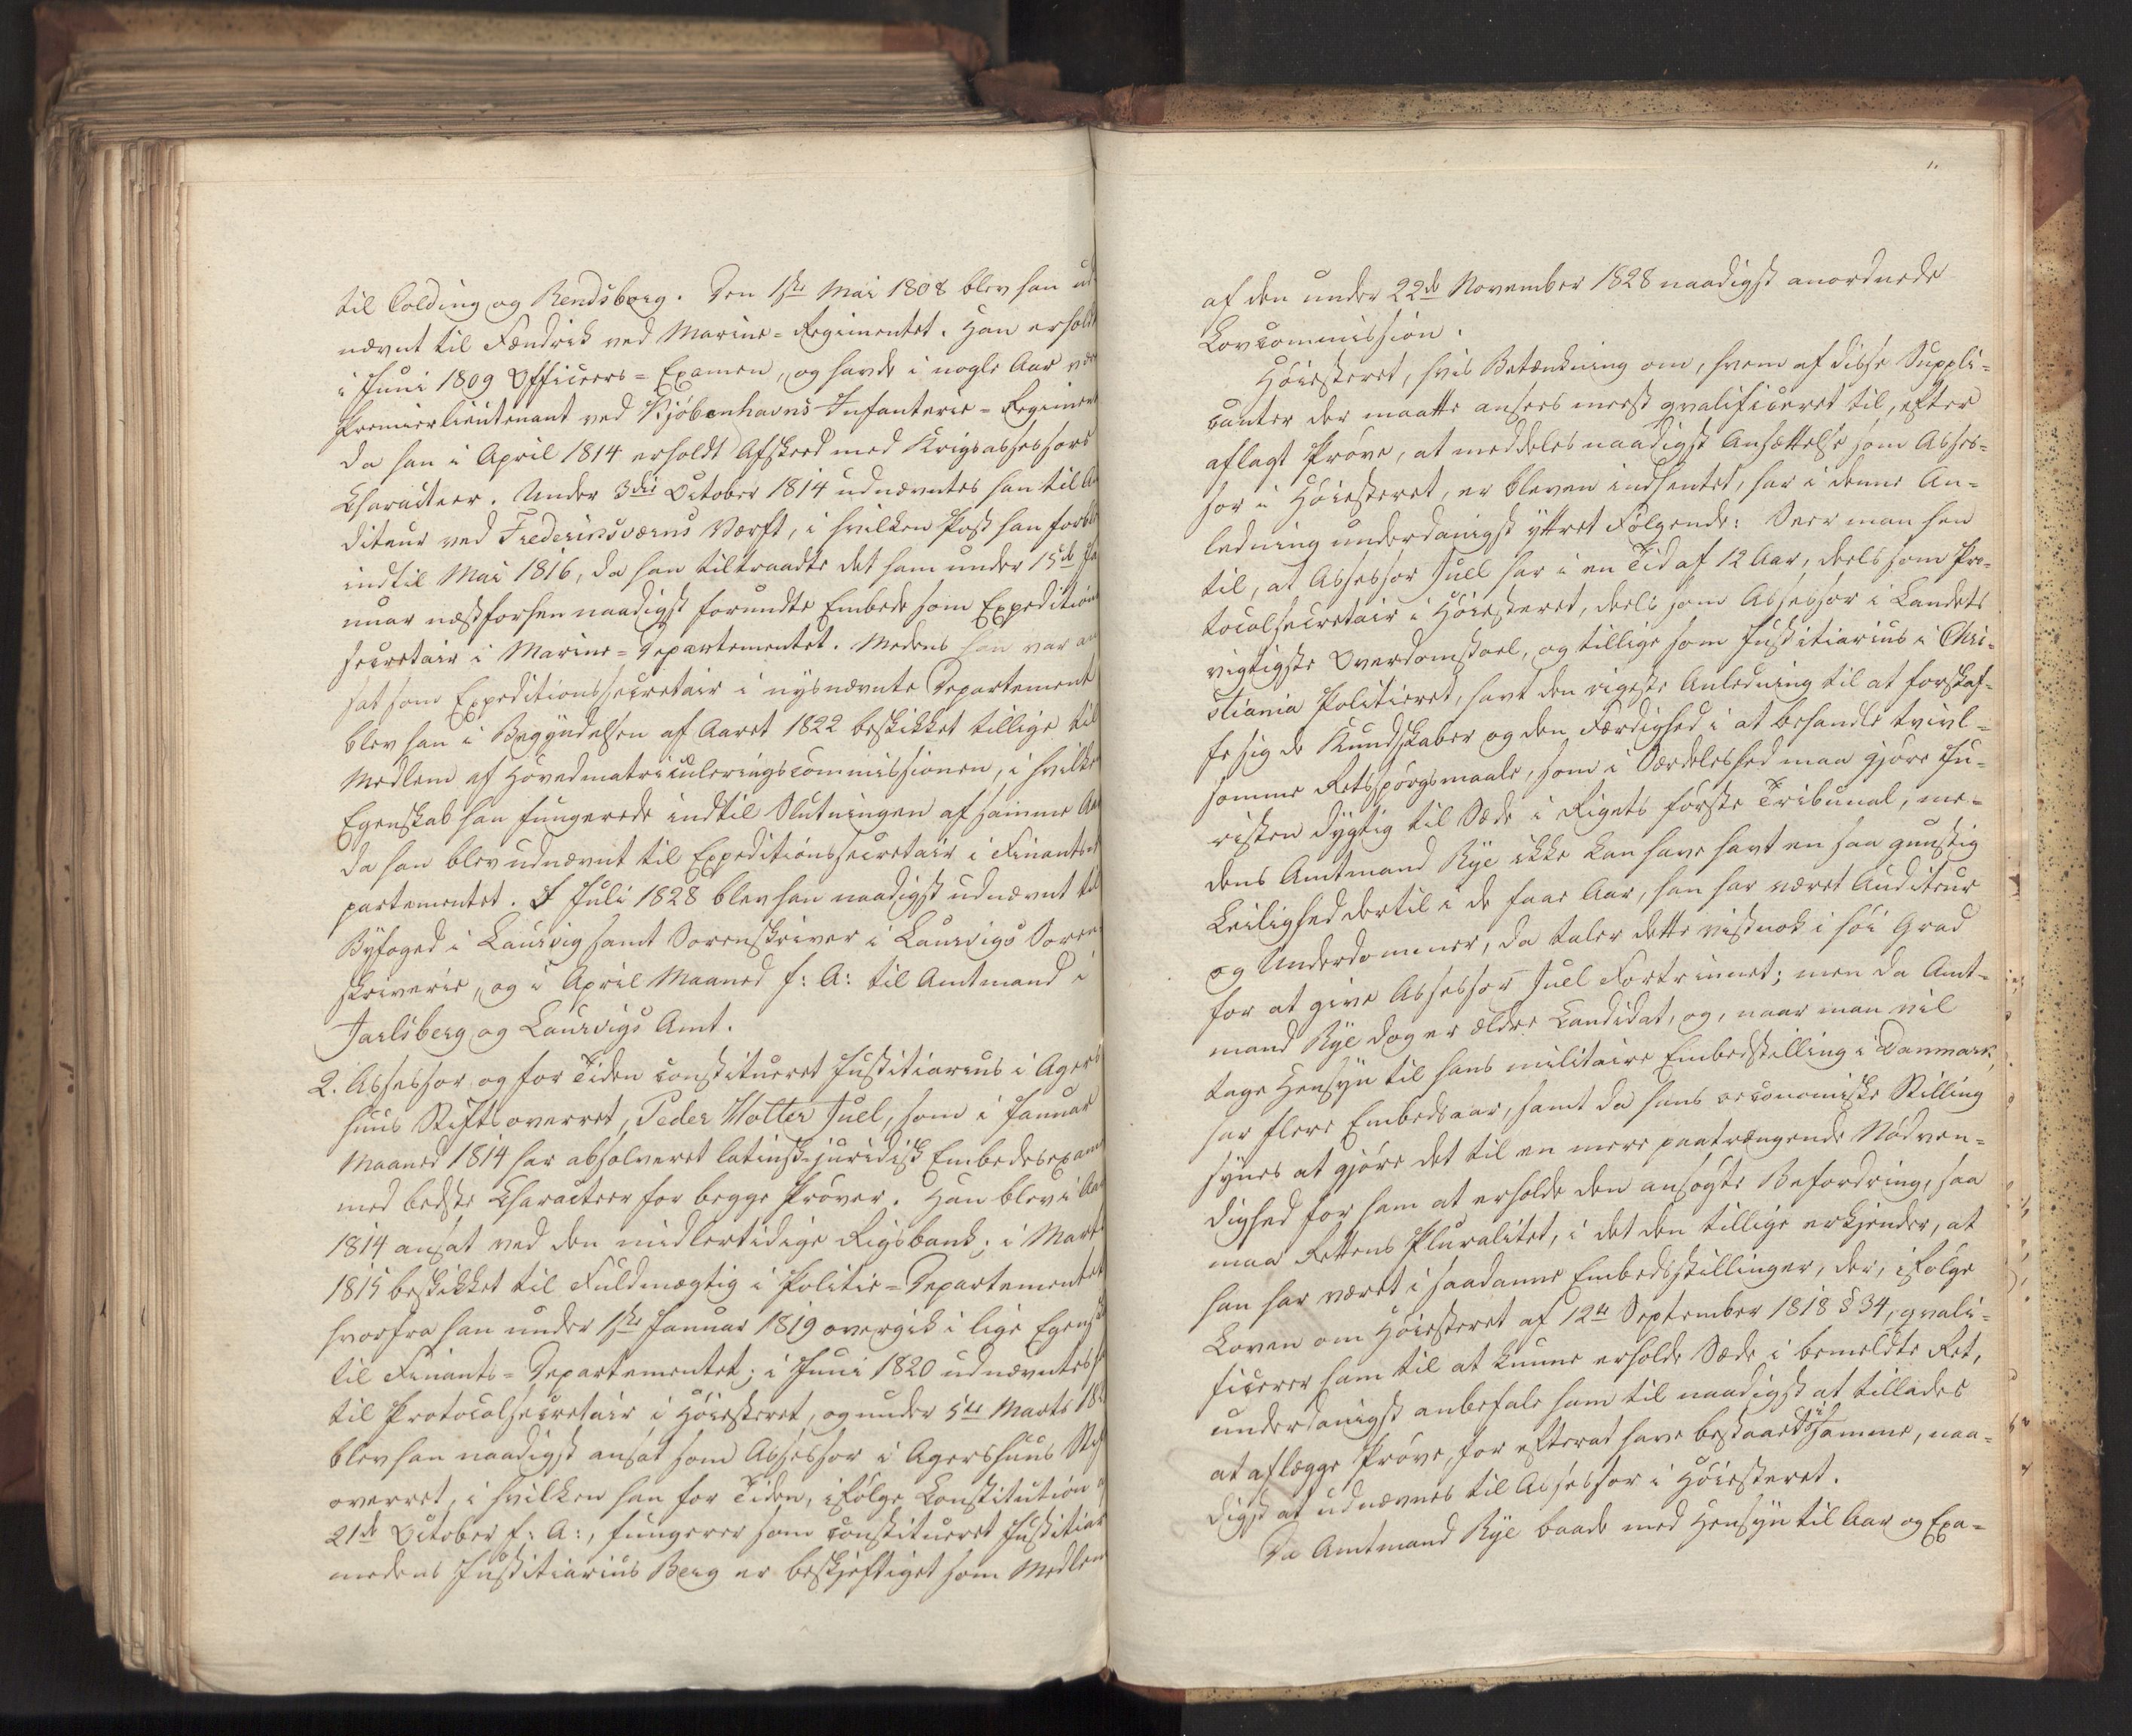 til Colding og Rendsborg. Den 1ste Mai 1808 blev han ud-
nævnt til Fændrik ved Marine-Regimentet. Han erholdt
i Juni 1809 Officeers-Examen, og havde i nogle Aar vær
Premierlieutenant ved Kjøbenhavns Infanterie-Regiment
da han i April 1814 erholdt Afskeed med Krigsassessors
Characteer. Under 3die October 1814 udnævntes han til Au
diteur ved Frederiksværns Værft, i hvilken Post han forblev
indtil Mai 1816, da han tiltraadte det ham under 15de Ja
nuar næstforhen naadigst forundte Embede som Expeditions
secretair i Marine-Departementet. Medens han var an
sat som Expeditionssecretair i nysnævnte Departement
blev han i Begyndelsen af Aaret 1822 beskikket tillige til
Medlem af Hovedmatriculeringscommissionen, i hvilken
Egenskab han fungerede indtil Slutningen af samme Aar
da han blev udnævnt til Expeditionssecretair i Finantsde
partementet. I Juli 1828 blev han naadigst udnævnt til
Byfoged i Laurvig samt Sorenskriver i Laurvigs Soren
skriverie, og i April Maaned f: A: til Amtmand i
Jarlsberg og Laurvigs Amt.
2. Assessor og for Tiden constitueret Justitiarius i Agers
huus Stiftsoverret, Peder Motter Juel, som i Januar
Maaned 1814 har absolveret latinsk-juridisk Embedsexamen
med bedste Characteer for begge Prøver. Han blev i Aar
1814 ansat ved den midlertidige Rigsbank; i Marts
1815 beskikket til Fuldmægtig i Politie-Departementet
hvorfra han under 1ste Januar 1819 overgik i lige Egensk
til Finants-Departementet; i Juni 1820 udnævntes ha
til Protocolsecretair i Høiesteret, og under 5te Marts 18
blev han naadigst ansat som Assessor i Agershuus Stif
overret, i hvilken han for Tiden, ifølge Constitution af
21de October f: A:, fungerer som constitueret Justitiar
medens Justitiarius Berg er beskjeftiget som Medlem
af den under 22de November 1828 naadigst anordnede
Lovcommission.
Høiesteret, hvis Betænkning om, hvem af disse Suppli-
canter der maatte ansees meest qvalificeret til, efter
aflagt Prøve, at meddeles naadigst Ansættelse som Asses-
sor i Høiesteret, er bleven indhentet, har i denne An-
ledning underdanigst yttret Følgende: Seer man hen
til, at Assessor Juel har i en Tid af 12 Aar, deels som Pro-
tocolsecretair i Høiesteret, deels som Assessor i Landets
vigtigste Overdomstoel, og tillige som Justitiarius i Chri-
stiania Politieret, havt den rigeste Anledning til at forskaf-
fe sig de Kundskaber og den Færdighed i at behandle tvivl-
somme Retsspørgsmaale, som i Særdeleshed maa gjøre Ju-
risten dygtig til Sæde i Rigets første Tribunal, me-
dens Amtmand Rye ikke kan have havt en saa gunstig
Leilighed dertil i de faae Aar, han har været Auditeur
og Underdommer, da taler dette vistnok i høi Grad
for at give Assessor Juel Fortrinnet; men da Amt-
mand Rye dog er ældre Candidat, og, naar man vil
tage Hensyn til hans militaire Embedsstilling i Danmark,
har flere Embedsaar, samt da hans oeconomiske Stilling
synes at gjøre det til en mere paatrængende Nødven-
dighed for ham at erholde den ansøgte Befordring, saa
maa Rettens Pluralitet, i det den tillige erkjender, at
han har været i saadanne Embedsstillinger, der, ifølge
Loven om Høiesteret af 12te September 1818 § 34, qvali-
ficerer ham til at kunne erholde Sæde i bemeldte Ret,
underdanigst anbefale ham til naadigst at tillades
at aflægge Prøve, for efterat have bestaaet i samme, naa-
digst at udnævnes til Assessor i Høiesteret.
Da Amtmand Rye baade med Hensyn til Aar og Exa-